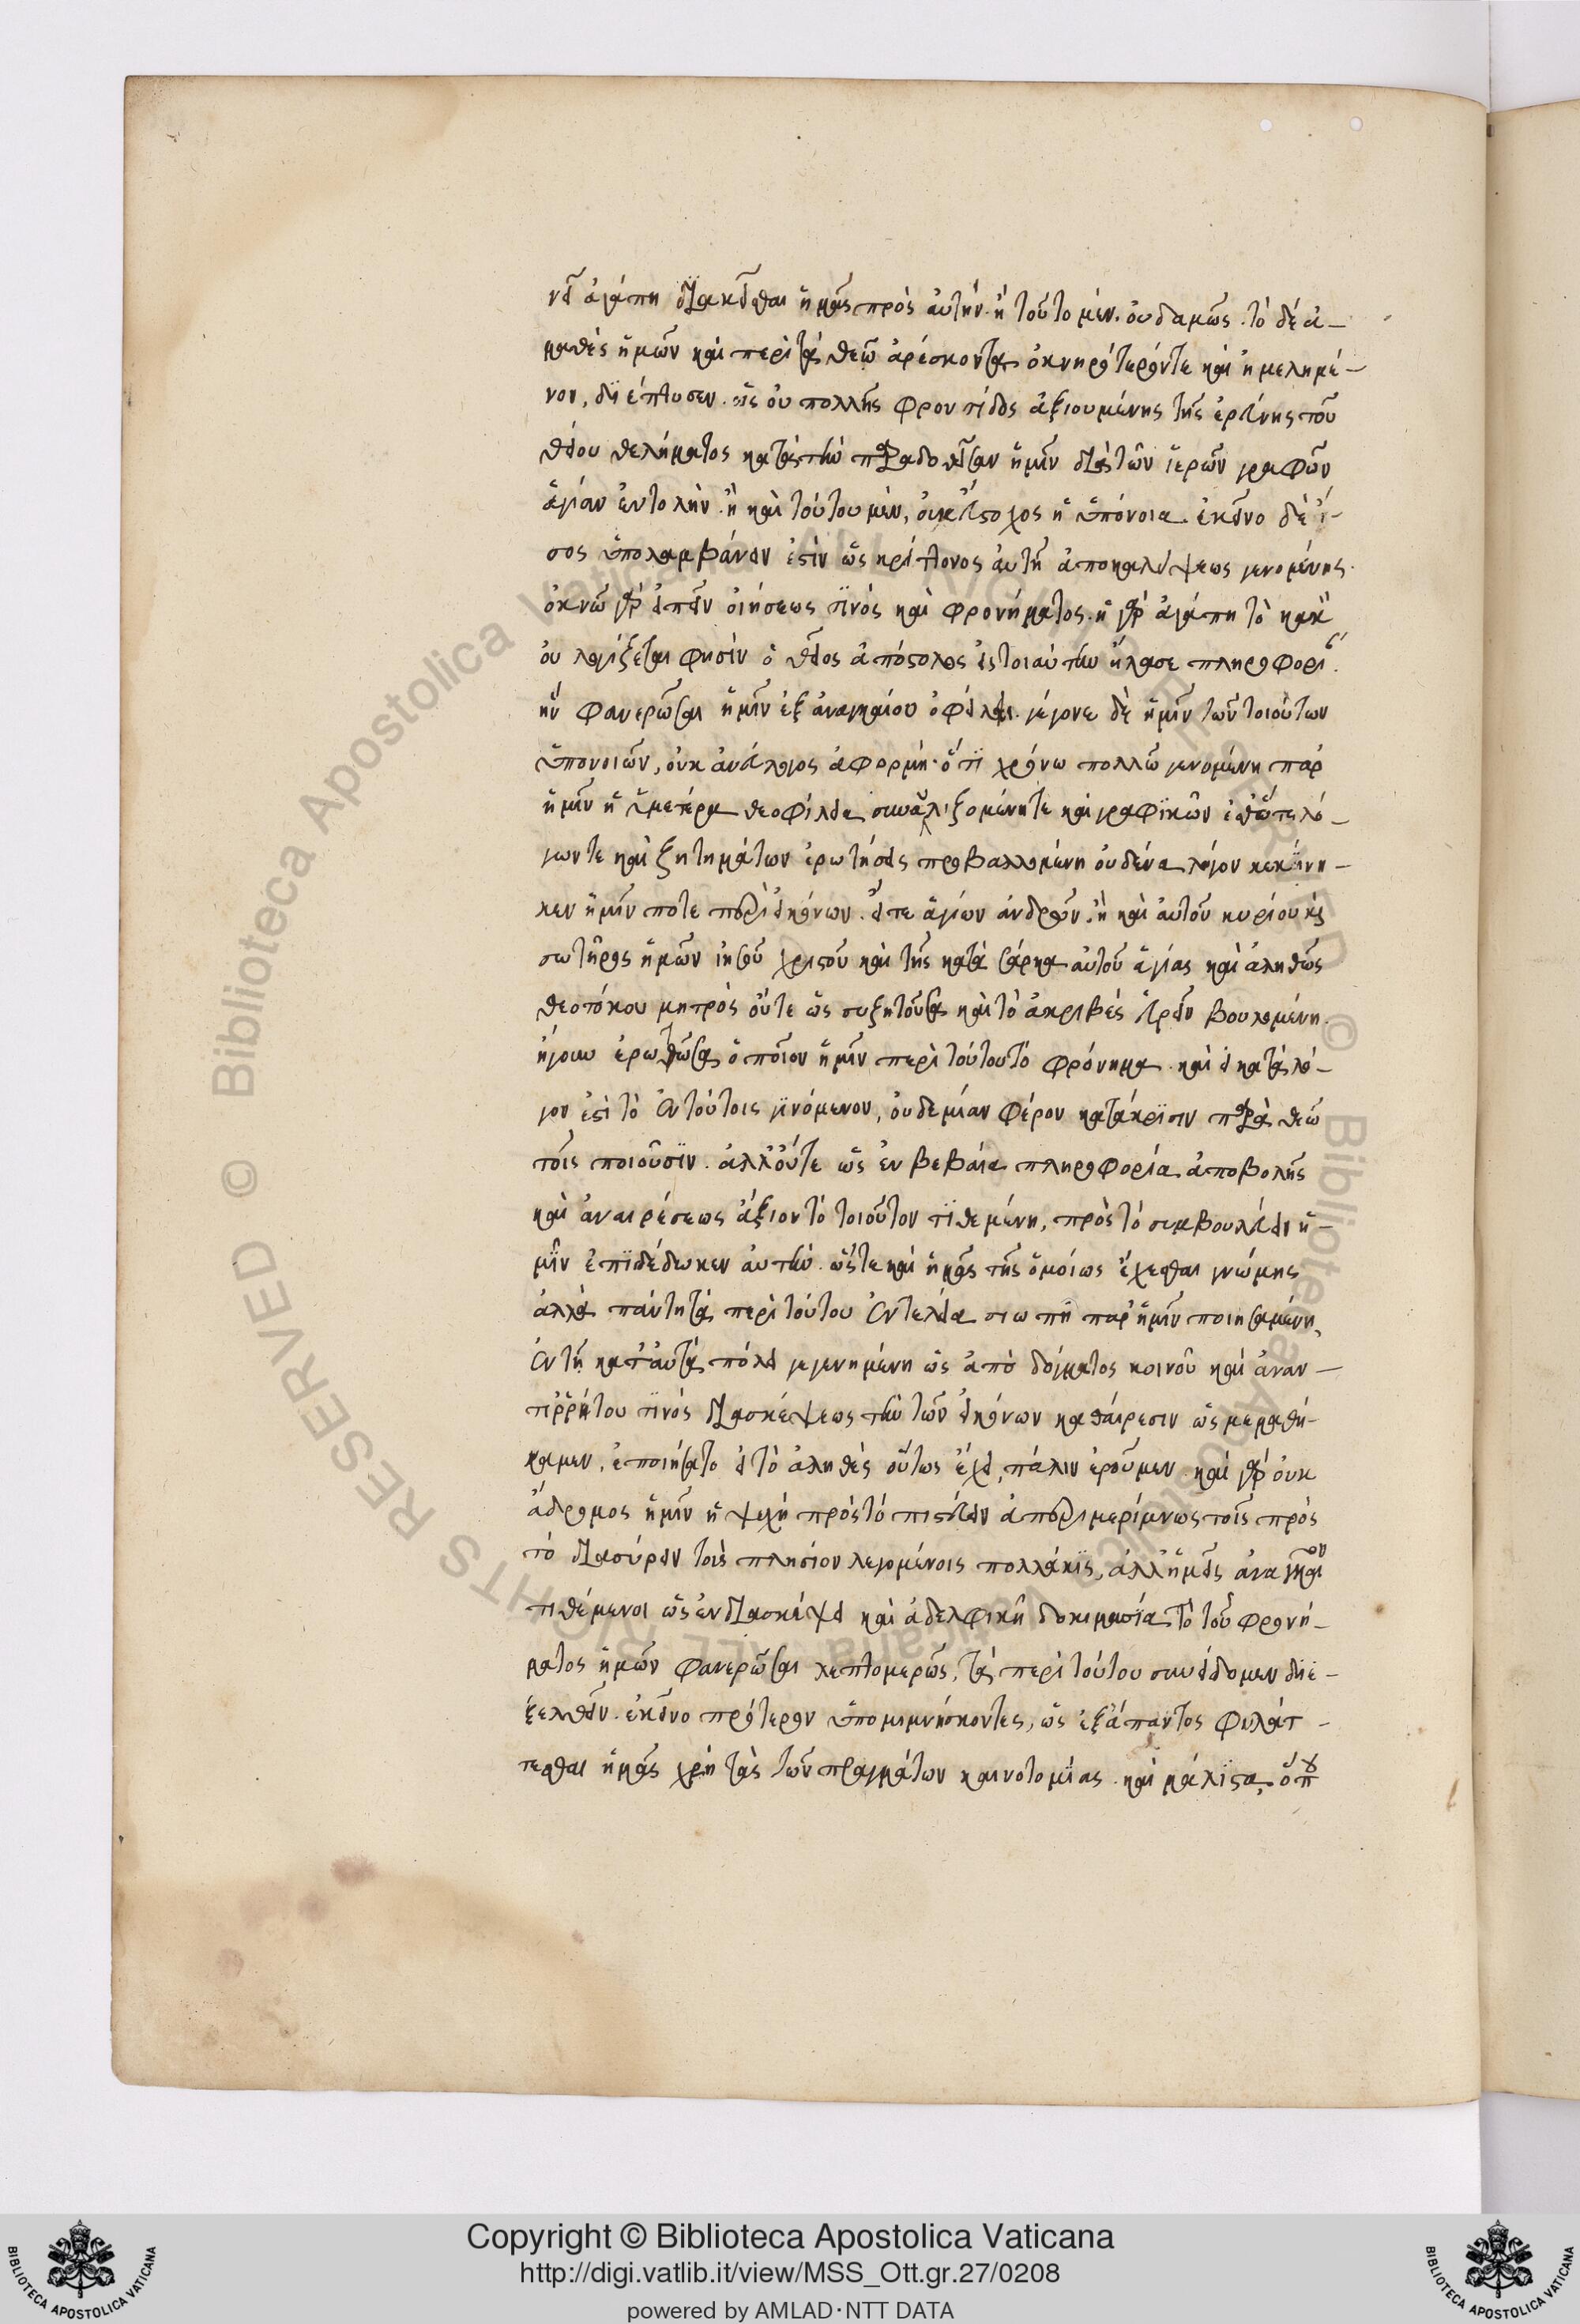 νεῖ ἀγάπη διακεῖσθαι ἡμᾶς πρὸς αὐτήν. ἢ τοῦτο μὲν οὐδαμῶς. τὸ δὲ ἀ-
μαθὲς ἡμῶν καὶ περὶ τὰ θεῶ ἀρέσκοντα ὀκνηρότερόν τε καὶ ἠμελημέ-
νον, διέπτυσεν. ὡς οὐ πολλῆς φροντίδος ἀξιουμένης τῆς ἐρεύνης τοῦ
θείου θελήματος κατὰ τὴν παραδοθεῖσαν ἡμῖν διὰ τῶν ἱερῶν γραφῶν
ἁγίαν ἐντολήν. ἢ καὶ τούτου μὲν, οὐκ εὔστοχος ἡ ὑπόνοια. ἐκεῖνο δὲ ἴ-
σως ὑπολαμβάνειν ἐστὶν ὡς κρείττονος αὐτῆ ἀποκαλύψεως γενομένης.
ὀκνῶ γὰρ εἰπεῖν οἰήσεως τινὸς καὶ φρονήματος. ἡ γὰρ ἀγάπη τὸ κακὸν
οὐ λογίζεται φησὶν ὁ θεῖος ἀπόστολος εἰς τοιαύτην ἤλασε πληροφορίαν.
ἣν φανερῶσαι ἡμῖν ἐξ ἀναγκαίου ὀφείλει. γέγονε δὲ ἡμῖν τῶν τοιούτων
ὑπονοιῶν, οὐκ ἀνεύλογος ἀφορμή. ὅτι χρόνω πολλῶ γενομένη παρ
ἡμῖν ἡ ὑμετέρα θεοφίλεια συναυλιζομένη τε καὶ γραφικῶν ἐσθότε λό-
γων τε καὶ ζητημάτων ἐρωτήσεις προβαλλομένη οὐδένα λόγον κεκίνη-
κεν ἡμῖν ποτε περὶ εἰκόνων. εἴτε ἁγίων ἀνδρῶν, ἢ καὶ αὐτοῦ κυρίου καὶ
σωτῆρος ἡμῶν ἰησοῦ χριστοῦ καὶ τῆς κατὰ σάρκα αὐτοῦ ἁγίας καὶ ἀληθῶς
θεοτόκου μητρὸς οὔτε ὡς συζητοῦσα καὶ τὸ ἀκριβὲς εὑρεῖν βουλομένη.
ἤγουν ἐρωτῶσα ὁποῖον ἡμῖν περὶ τούτου τὸ φρόνημα. καὶ εἰ κατὰ λό-
γον ἐστὶ τὸ ἐν τούτοις γινόμενον, οὐδεμίαν φέρον κατάκρισιν παρὰ θεῶ
τοῖς ποιοῦσιν. ἀλλ' οὔτε ὡς ἐν βεβαία πληροφορία ἀποβολῆς
καὶ ἀναιρέσεως ἄξιον τὸ τοιοῦτον τιθεμένη, πρὸς τὸ συμβουλεύειν ἡ-
μῖν ἐπιδέδωκεν αὐτήν. ὥστε καὶ ἡμᾶς τῆς ὁμοίως ἔχεσθαι γνώμης
ἀλλὰ πάντη τὰ περὶ τούτου ἐντελεία σιωπῆ παρ' ἡμῖν ποιησαμένη,
ἐν τῆ κατ' αὐτὰ πόλει γεγενημένη ὡς ἀπὸ δόγματος κοινοῦ καὶ ἀναν-
τιρρήτου τινὸς διασκέψεως τὴν τῶν εἰκόνων καθαίρεσιν ὡς μεμαθή-
καμεν, ἐποιήσατο εἰ τὸ ἀληθὲς οὕτως ἔχει, πάλιν ἐροῦμεν. καὶ γὰρ οὐκ
ἄδρομος ἡμῖν ἡ ψυχὴ πρὸς τὸ πιστεύειν ἀπεριμερίμνως τοῖς πρὸς
τὸ διασύρειν τοὺς πλησίον λεγομένοις πολλάκις, ἀλλ' ἡμεῖς ἀναγκαῖον
τιθέμενοι ὡς ἐν διασκέψει καὶ ἀδελφικῆ δοκιμασία τὸ τοῦ φρονή-
ματος ἡμῶν φανερῶσαι λεπτομερῶς, τὰ περὶ τούτου συνείδομεν διε-
ξελθεῖν. ἐκεῖνο πρότερον ὑπομιμνήσκοντες, ὡς ἐξάπαντος φυλάτ-
τεσθαι ἡμᾶς χρὴ τὰς τῶν πραγμάτων καινοτομίας. καὶ μάλιστα, ὅπου
Copyright © Biblioteca Apostolica Vaticana
http://digi.vatlib.it/view/MSS_Ott.gr.27/0208
powered by AMLAD·NTT DATA